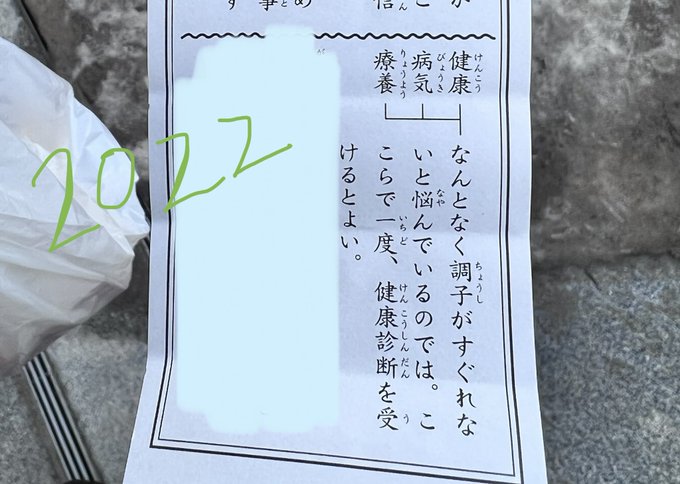 健康
病気
療養
なんとなく調子がすぐれな
いと悩んでいるのでは。こ
こらで一度、健康診断を受
けるとよい。
2022